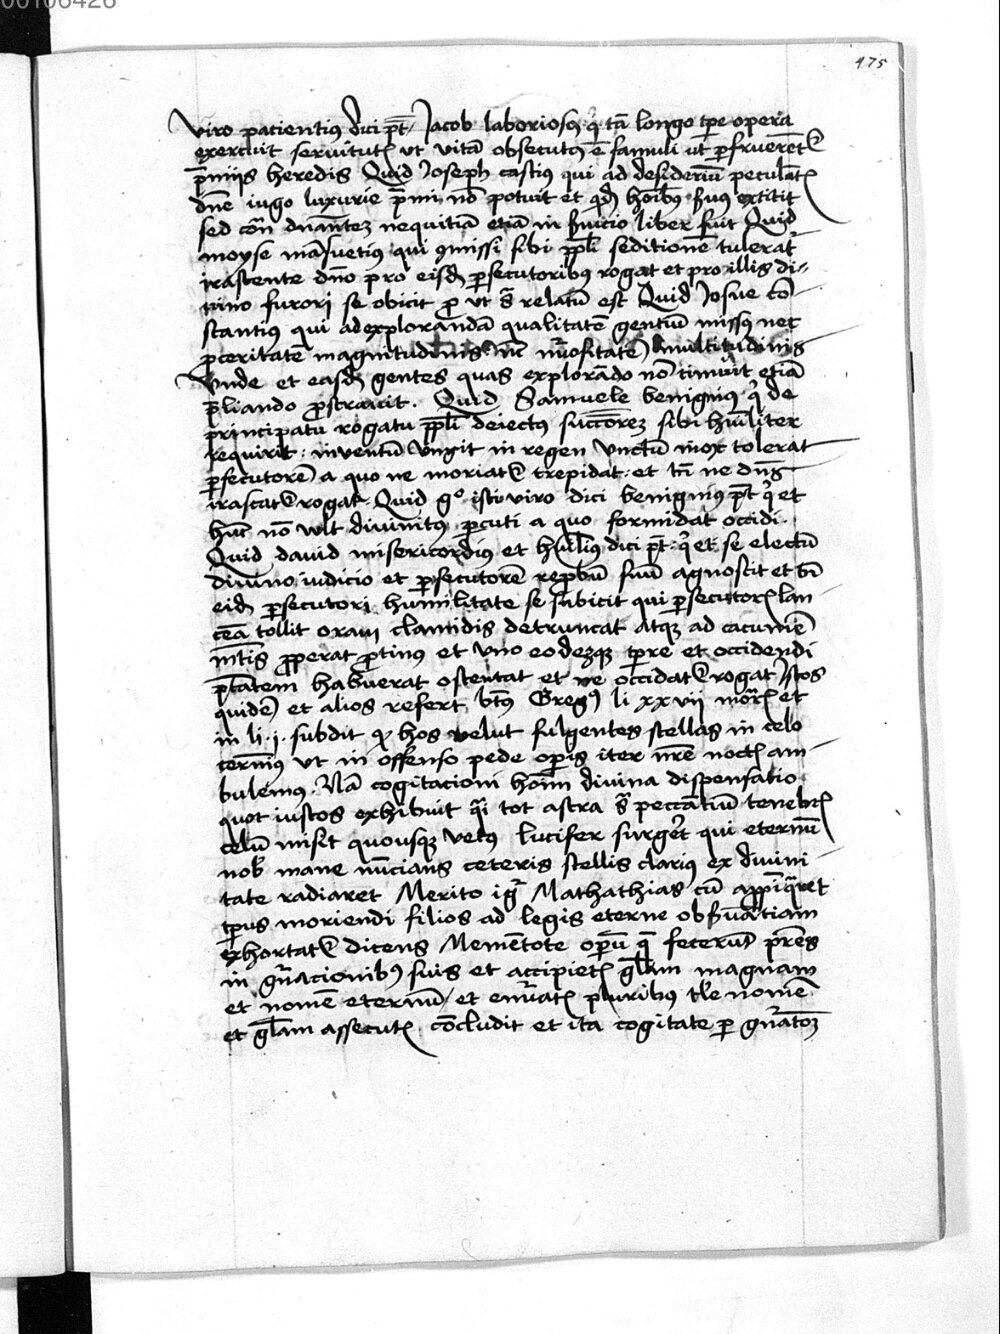 00106426
475
viro patientius dici pt̄ Jacob laboriosus q̇ tā longo tp̄re opera
exercuit seruitutis ut vitā obsecutus ē famuli ut p̄frueret
p̄mijs heredis Quid Joseph castius qui ad desideriū peculātis
dn̄e iugo luxurie p̄mi nō potuit et qd̄ hoībus suus extitit
sed cōn dn̄antez nequitiā etiā in s̄uicio liber fuit Quid
moyse māsuetius qui 9missi sibi pp̄li seditionē tulerat
irascente dn̄o pro eisd̄ p̄secutoribus rogat et pro illis di-
uino furori se obicit pro ut s̄ relatū est Quid Josue cō
stantius qui ad explorandā qualitatē gentiū missus nec
proceritatē magnitudinis nec nūositatē multitudinis
Vnde et easd̄ gentes quas explorādo nō timuit etiā
p̄liando prostrauit. Quid Samuele benignius q̇ de
principatu rogatu pp̄li deiectus successorez sibi hūiliter
requirit: inuentū vngit in regen vnctū mox tolerat
p̄secutorē a quo ne moriat trepidat: et tn̄ ne dn̄s
irascat rogat Quid g° isto viro dici benignius pt̄ q̇ et
hūc nō vult diuinitus percuti a quo formidat occidi
Quid dauid misericordius et hūilius dici pt̄: q̇ et se electū
diuino iudicio et p̄secutorē reprobū suū agnoscit et tn̄
eid̄ p̄secutori humilitate se subicit qui p̄secutoris lan
ceā tollit oram clamidis detruncat atqz ad cacumē
mōtis properat protinus et vno eodezqz tp̄re et occidendi
pt̄atem habuerat ostentat et ne occidat rogat Istos
quidē et alios refert btūs Greg9 li xxvii mor̄ et
in li. i. subdit q̇ hos velut fulgentes stellas in celo
cernimus ut in offenso pede operis iter nr̄e noctis am
bulemus. Nā cogitacioni hoīm diuina dispensatio
quot iustos exhibuit q̄i tot astra s̄ peccātiū tenebris
celū misit quousqz verus lucifer surgeret qui eternū
nob̄ mane nūcians ceteris stellis clarius ex diuini
tate radiaret Merito igr̄ Mathathias cū appīquaret
tp̄us moriendi filios ad legis eterne obs̄uātiam
exhortat dicens Memētote operū q̄ fecerūt pr̄es
in gn̄acionibus suis et accipietis gl̄am magnam
et nomē eternū et enūatis pluribus tl̄e nomē
et gl̄am assecutis cōcludit et ita cogitate p̄ gn̄atōz